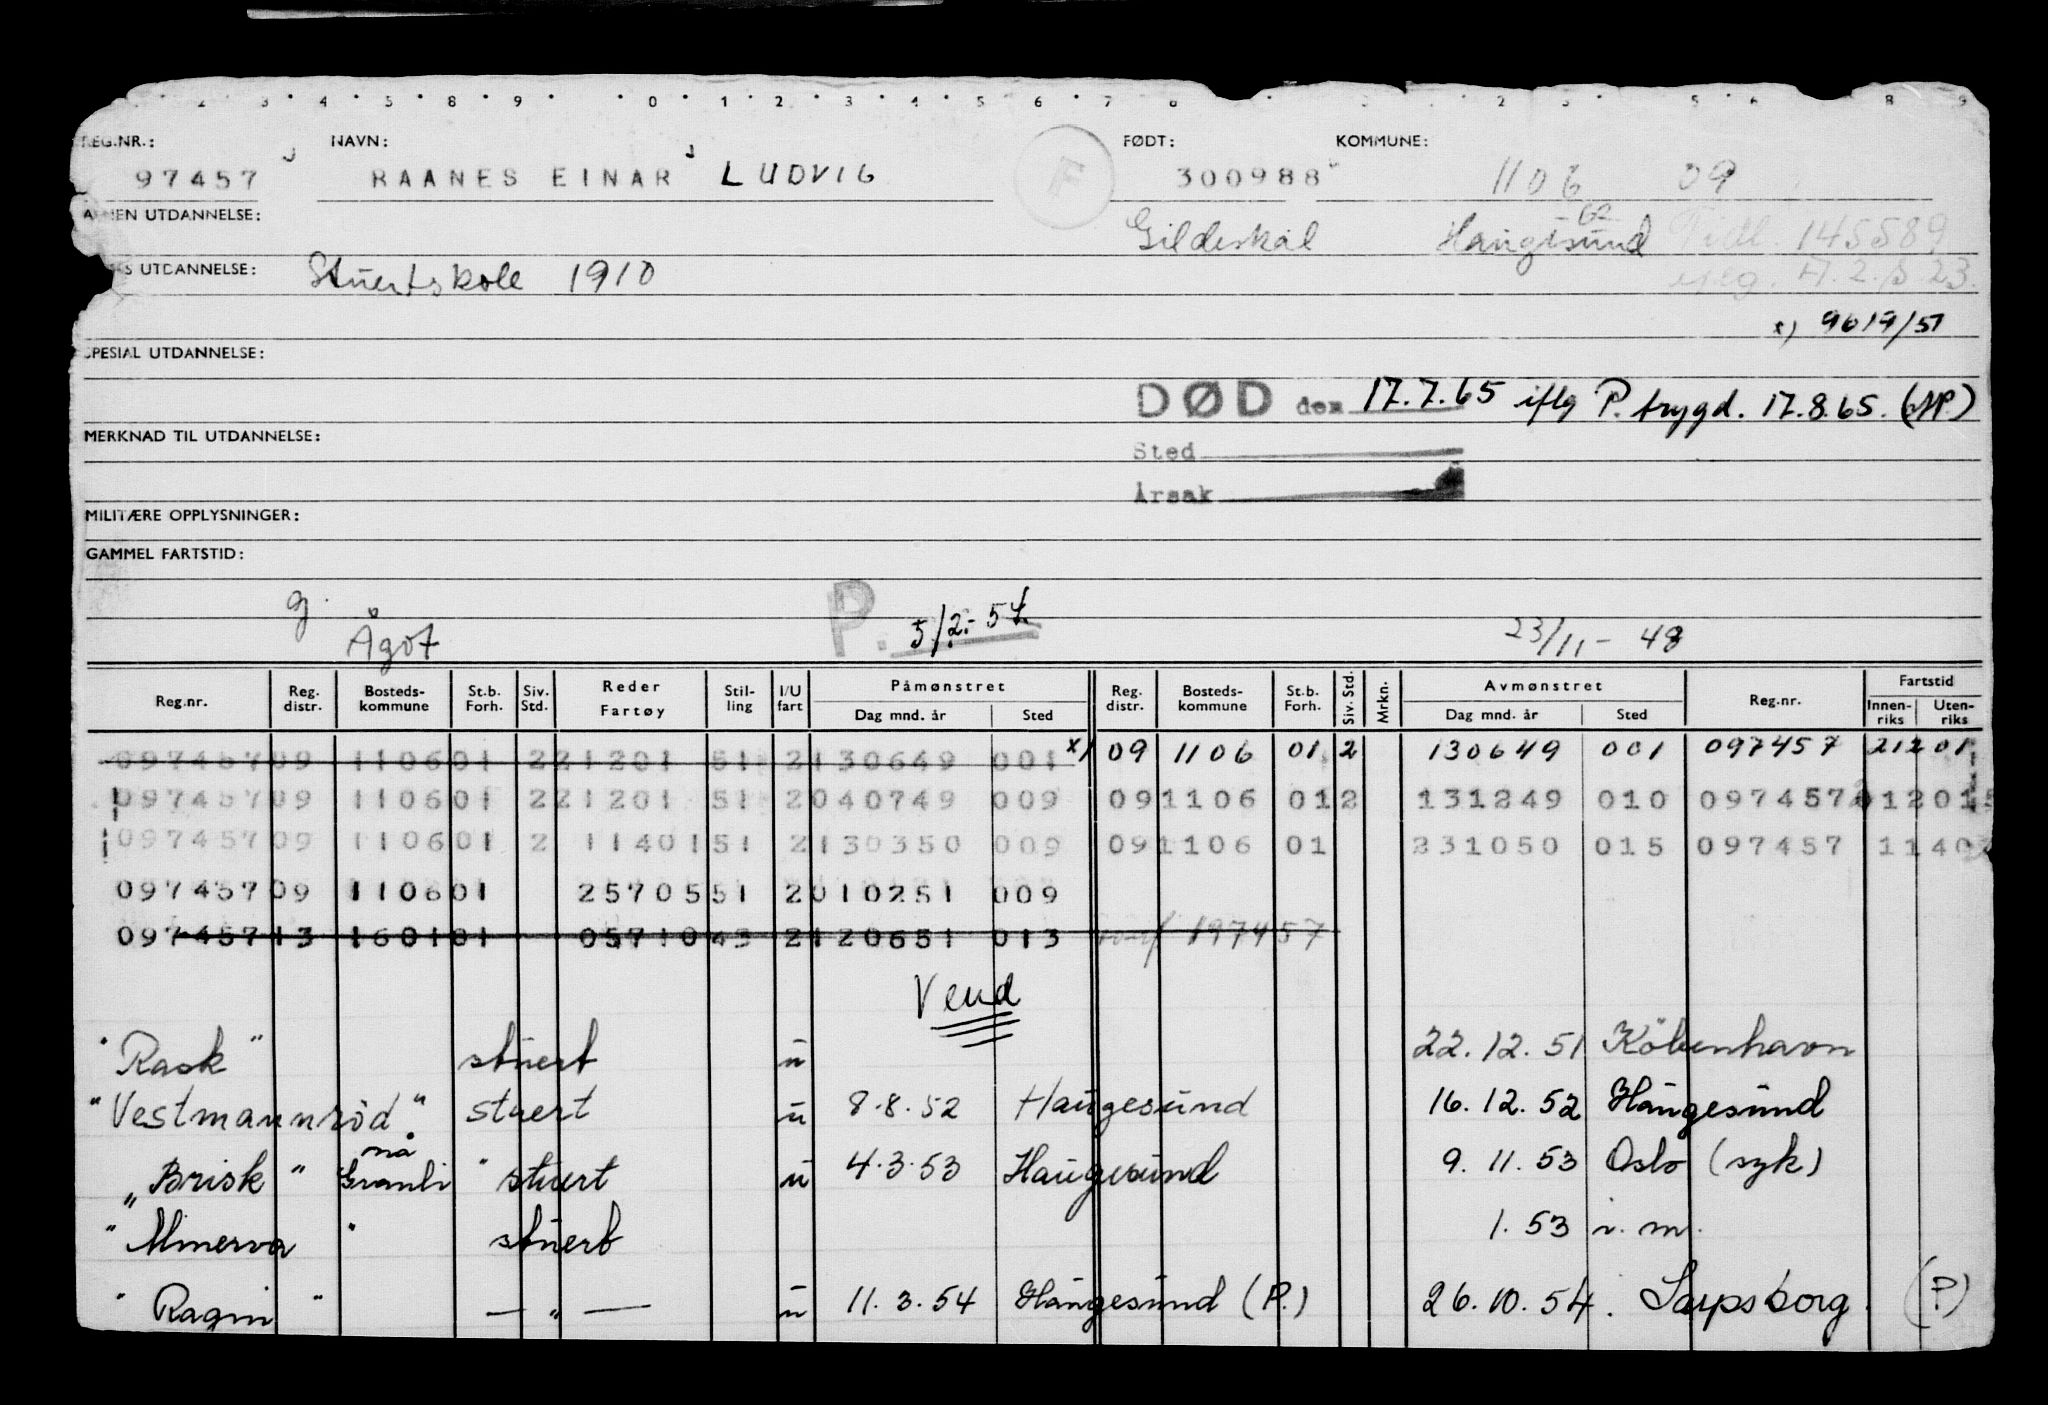 REG.NR.: NAVN: FØDT: KOMMUNE:
97457 RAANES EINAR LUDVIG F 300988 1106 09
UTDANNELSE:
Gildeskål Haugesund Tidl. 145589
UTDANNELSE: Stuertskole 1910 A. 2. s 23.
x) 9619/51
SPESIAL UTDANNELSE:
DØD den 17.7.65 iflg P. trygd. 17.8.65.
MERKNAD TIL UTDANNELSE:
Sted
Årsak
MILITÆRE OPPLYSNINGER:
GAMMEL FARTSTID:
g.
Ågot P. 5/2.- 54 23/11 - 48
Reg.nr. Reg. distr. Bosteds-kommune St.b. Forh. Siv. Std. Reder Fartøy Stil-ling I/U fart Påmønstret Dag mnd. år Sted Reg. distr. Bosteds-kommune St.b. Forh. Siv. Std. Mrkn. Avmønstret Dag mnd. år Sted Reg.nr. Fartstid Innen-riks Uten-riks
097457 09 1106 01 2 21201 51 2 130649 001 x) 09 1106 01 2 130649 001 097457 212 01
097457 09 1106 01 2 21201 51 2 040749 009 09 1106 01 2 131249 010 097457 012 015
097457 09 1106 01 2 11401 51 2 130350 009 09 1106 01 231050 015 097457 1140
097457 09 1106 01 25705 51 2 010251 009
097457 13 1601 01 05710 43 2 120651 013 197457
Vend
"Rask" stuert u 22.12.51 Köbenhavn
"Vestmannröd" stuert u 8.8.52 Haugesund 16.12.52 Haugesund
nå
"Brisk" Granli" stuert u 4.3.53 Haugesund 9.11.53 Oslo (syk)
"Minerva" stuert 1.53 i. m.
"Ragni" — " — u 11.3.54 Haugesund (P.) 26.10.54. Sarpsborg. (P)